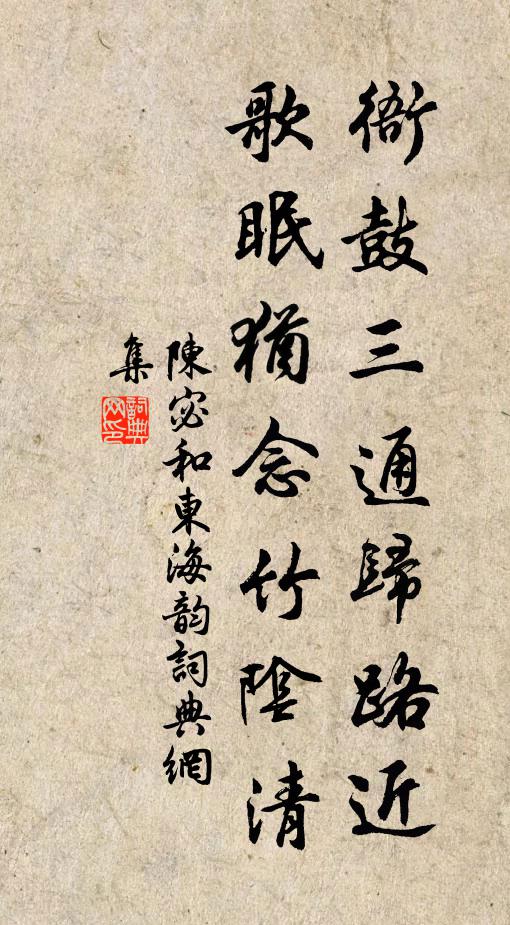 衙鼓三通歸路近
歌眠猶念竹陰清
陳宓和東海韵詞典網
集
詞典
网印